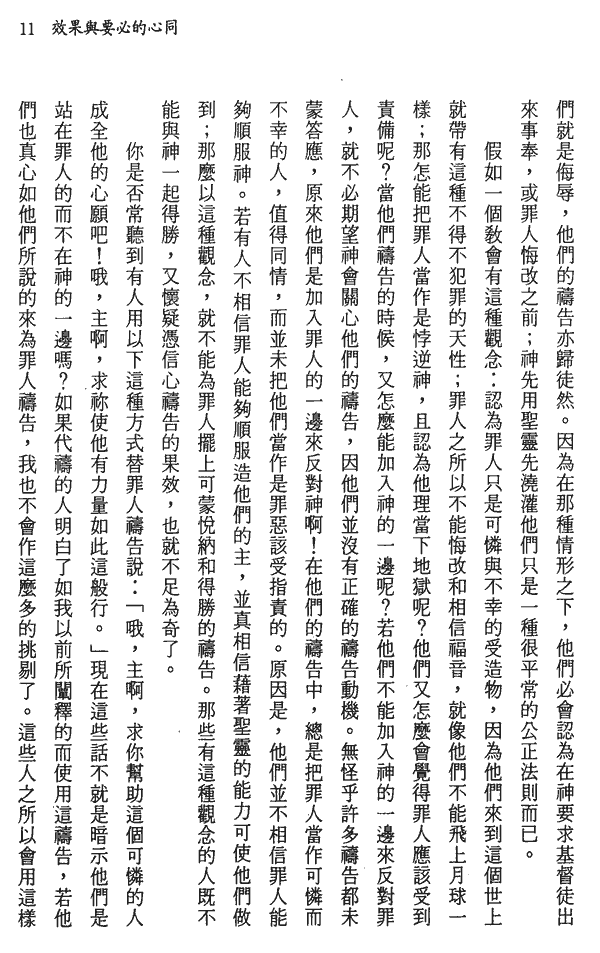 11　效果與要必的心同
們就是侮辱，他們的禱告亦歸徒然。因為在那種情形之下，他們必會認為在神要求基督徒出
來事奉，或罪人悔改之前；神先用聖靈先澆灌他們只是一種很平常的公正法則而已。
假如一個教會有這種觀念：認為罪人只是可憐與不幸的受造物，因為他們來到這個世上
就帶有這種不得不犯罪的天性；罪人之所以不能悔改和相信福音，就像他們不能飛上月球一
樣；那怎能把罪人當作是悖逆神，且認為他理當下地獄呢？他們又怎麼會覺得罪人應該受到
責備呢？當他們禱告的時候，又怎麼能加入神的一邊呢？若他們不能加入神的一邊來反對罪
人，就不必期望神會關心他們的禱告，因他們並沒有正確的禱告動機。無怪乎許多禱告都未
蒙答應，原來他們是加入罪人的一邊來反對神啊！在他們的禱告中，總是把罪人當作可憐而
不幸的人，值得同情，而並未把他們當作是罪惡該受指責的。原因是，他們並不相信罪人能
夠順服神。若有人不相信罪人能夠順服造他們的主，並真相信藉著聖靈的能力可使他們做
到；那麼以這種觀念，就不能為罪人擺上可蒙悅納和得勝的禱告。那些有這種觀念的人既不
能與神一起得勝，又懷疑憑信心禱告的果效，也就不足為奇了。
你是否常聽到有人用以下這種方式替罪人禱告說：「哦，主啊，求你幫助這個可憐的人
成全他的心願吧！哦，主啊，求祢使他有力量如此這般行。」現在這些話不就是暗示他們是
站在罪人的而不在神的一邊嗎？如果代禱的人明白了如我以前所闡釋的而使用這禱告，若他
們也真心如他們所說的來為罪人禱告，我也不會作這麼多的挑剔了。這些人之所以會用這樣